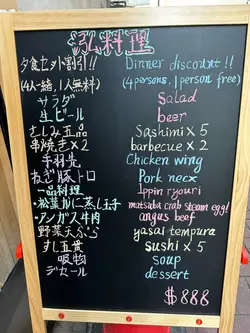 弘料理
夕食セット割引!! Dinner discount!!
(4人一緒、1人無料) (4persons, 1person free)
サラダ salad
生ビール beer
さしみ五品 Sashimi×5
串焼き×2 barbecue×2
手羽先 Chicken wing
ねぎ豚トロ Pork neck
一品料理 Ippin ryouri
・松葉かに蒸し玉子 matsuba crab steam egg!
・アンガス牛肉 angus beef
野菜天ぷら yasai tempura
すし五貫 sushi×5
吸物 soup
デセール dessert
$888